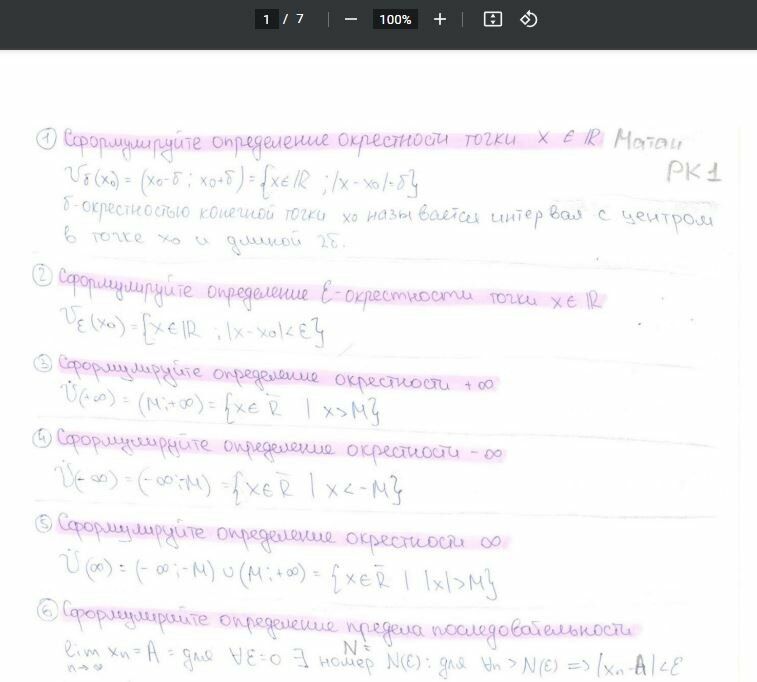 1 / 7 100%
① Сформулируйте определение окрестности точки x ∈ ℝ Матан
РК1
V_δ(x₀) = (x₀-δ ; x₀+δ) = {x∈ℝ ; |x-x₀|=δ}
δ-окрестностью конечной точки x₀ называется интервал с центром
в точке x₀ и длиной 2δ.
② Сформулируйте определение ε-окрестности точки x∈ℝ
V_ε(x₀) = {x∈ℝ ; |x-x₀|<ε}
③ Сформулируйте определение окрестности +∞
V̇(+∞) = (M;+∞) = {x∈R̄ | x>M}
④ Сформулируйте определение окрестности -∞
V̇(-∞) = (-∞;-M) = {x∈R̄ | x<-M}
⑤ Сформулируйте определение окрестности ∞
V̇(∞) = (-∞;-M) ∪ (M;+∞) = {x∈R̄ | |x|>M}
⑥ Сформулируйте определение предела последовательности
lim xₙ = A = для ∀ε=0 ∃ номер N(ε): для ∀n > N(ε) => |xₙ-A|<ε
n→∞